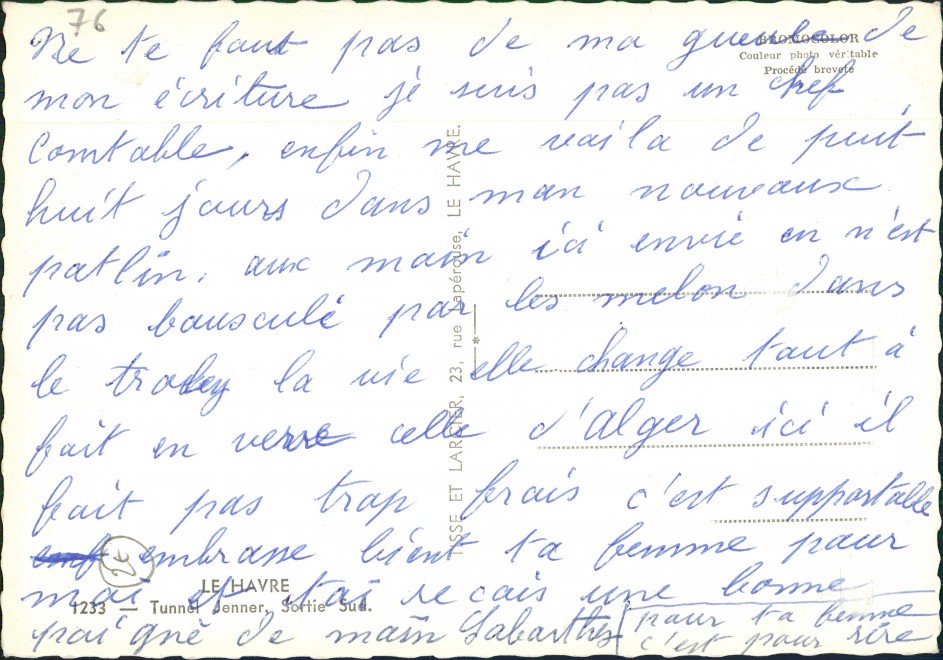 76
Ne te fout pas de ma gueule de
mon écriture je suis pas un chef
Comtable, enfin me voila de puit
huit jours dans mon nouveaux
patlin, aux moin ici envie on n'est
pas bousculé par les melon dans
le troley la vie elle change tout à
fait en verre celle d'Alger ici il
fait pas trop frais c'est supportable
embrasse bient ta femme pour
moi et toi recois une bonne
poigné de main Labarthe
pour ta femme
c'est pour rire
BROMOCOLOR
Couleur photo véritable
Procédé breveté
TISSE ET LARSIER, 23, rue Lapérouse, LE HAVRE.
2€
LE HAVRE
1233 — Tunnel Jenner, Sortie Sud.